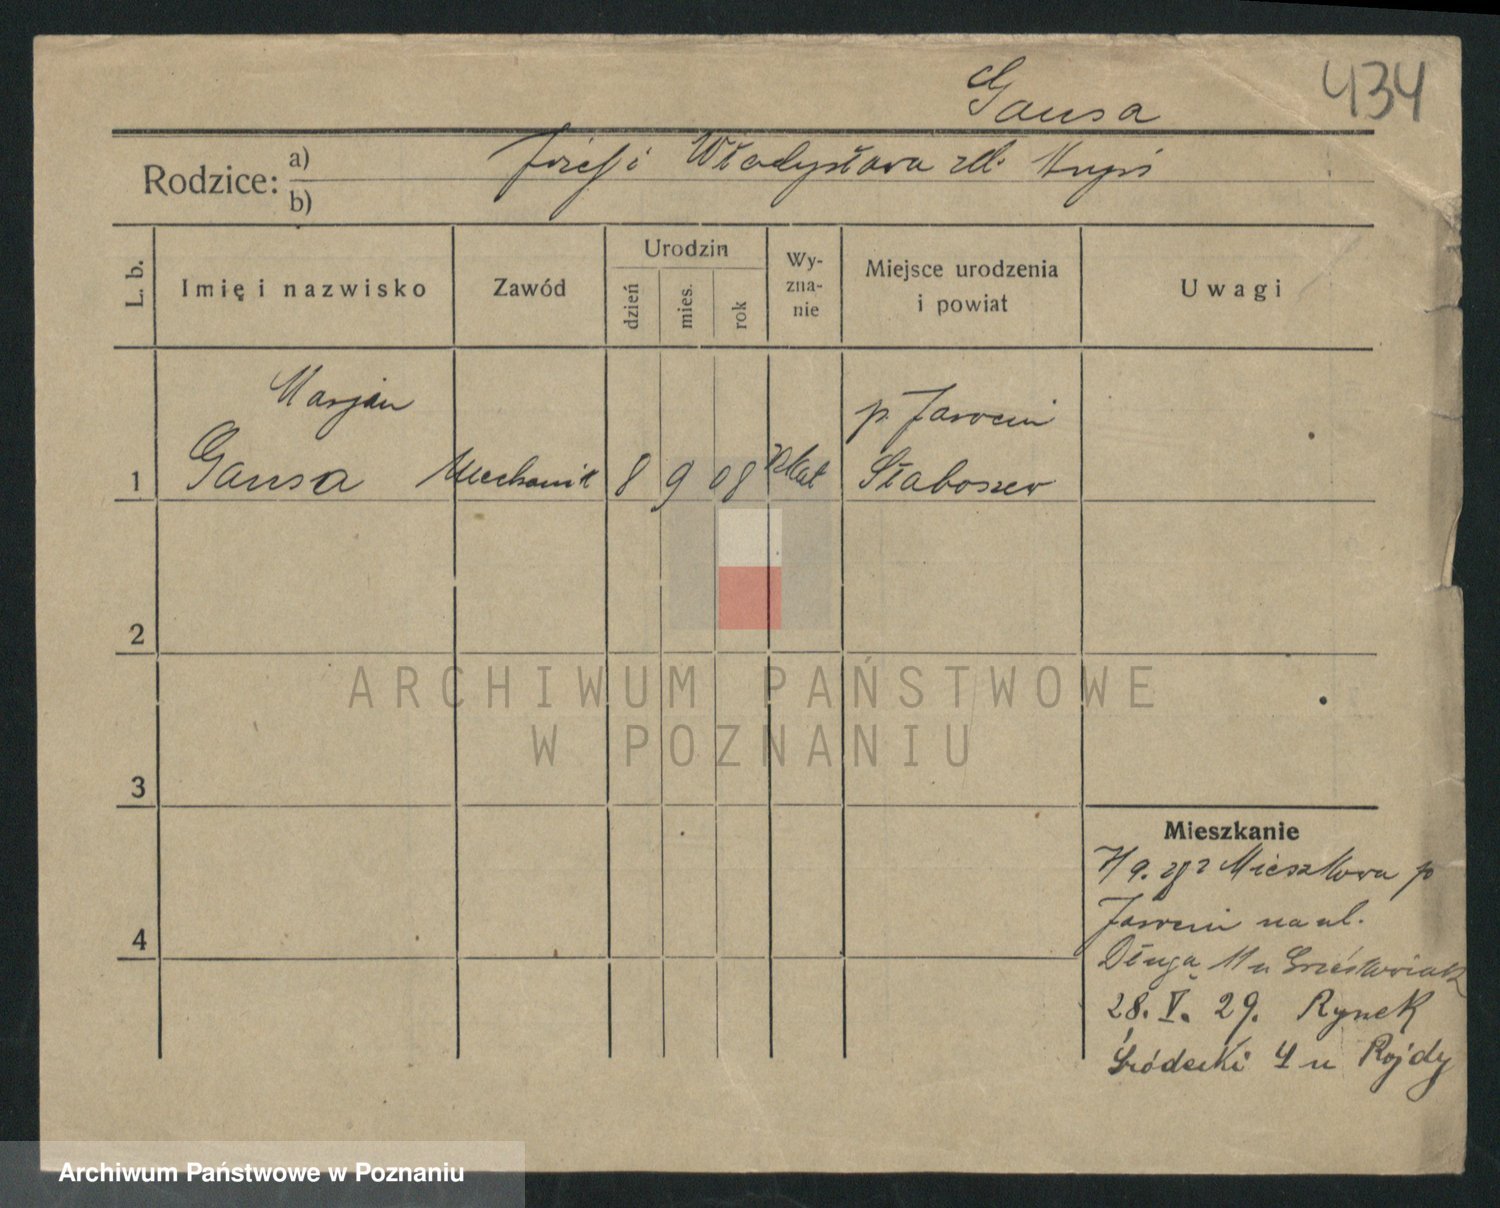 Gansa
434
Rodzice: a) Józef i Władysława
b)
L. b.
Imię i nazwisko
Zawód
Urodzin
dzień
mies.
rok
Wy-
zna-
nie
Miejsce urodzenia
i powiat
Uwagi
Marjan
p. Jarocin
1 Gansa Mechanik 8 9 08 Rkat Słaboszew
2
3
4
ARCHIWUM PAŃSTWOWE
W POZNANIU
Mieszkanie
Mieszkowa p
Jarocin na ul.
Długą 11 u Grześkowiak
28. V. 29. Rynek
Śródecki 4 u Rojdy
Archiwum Państwowe w Poznaniu